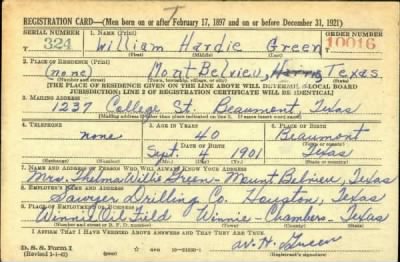 REGISTRATION CARD—(Men born on or after February 17, 1897 and on or before December 31, 1921)
SERIAL NUMBER 1. NAME (Print) ORDER NUMBER
T 324 William Hardie Green 10016
(First) (Middle) (Last)
2. PLACE OF RESIDENCE (Print)
(none) Mont Belview, Harris, Texas
(Number and street) (Town, township, village, or city) (County) (State)
[THE PLACE OF RESIDENCE GIVEN ON THE LINE ABOVE WILL DETERMINE LOCAL BOARD
JURISDICTION; LINE 2 OF REGISTRATION CERTIFICATE WILL BE IDENTICAL]
3. MAILING ADDRESS
1237 College St. Beaumont, Texas
[Mailing address if other than place indicated on line 2. If same insert word same]
4. TELEPHONE 5. AGE IN YEARS 6. PLACE OF BIRTH
none 40 Beaumont
DATE OF BIRTH (Town or county)
Sept. 4 1901 Texas
(Exchange) (Number) (Mo.) (Day) (Yr.) (State or country)
7. NAME AND ADDRESS OF PERSON WHO WILL ALWAYS KNOW YOUR ADDRESS
Mrs. Thelma Willie Green - Mount Belview, Texas
8. EMPLOYER'S NAME AND ADDRESS
Sawyer Drilling Co. Houston, Texas
9. PLACE OF EMPLOYMENT OR BUSINESS
Winnie Oil Field Winnie - Chambers - Texas
(Number and street or R. F. D. number) (Town) (County) (State)
I AFFIRM THAT I HAVE VERIFIED ABOVE ANSWERS AND THAT THEY ARE TRUE.
D. S. S. Form 1
(Revised 1-1-42) W. H. Green
(Registrant's signature)